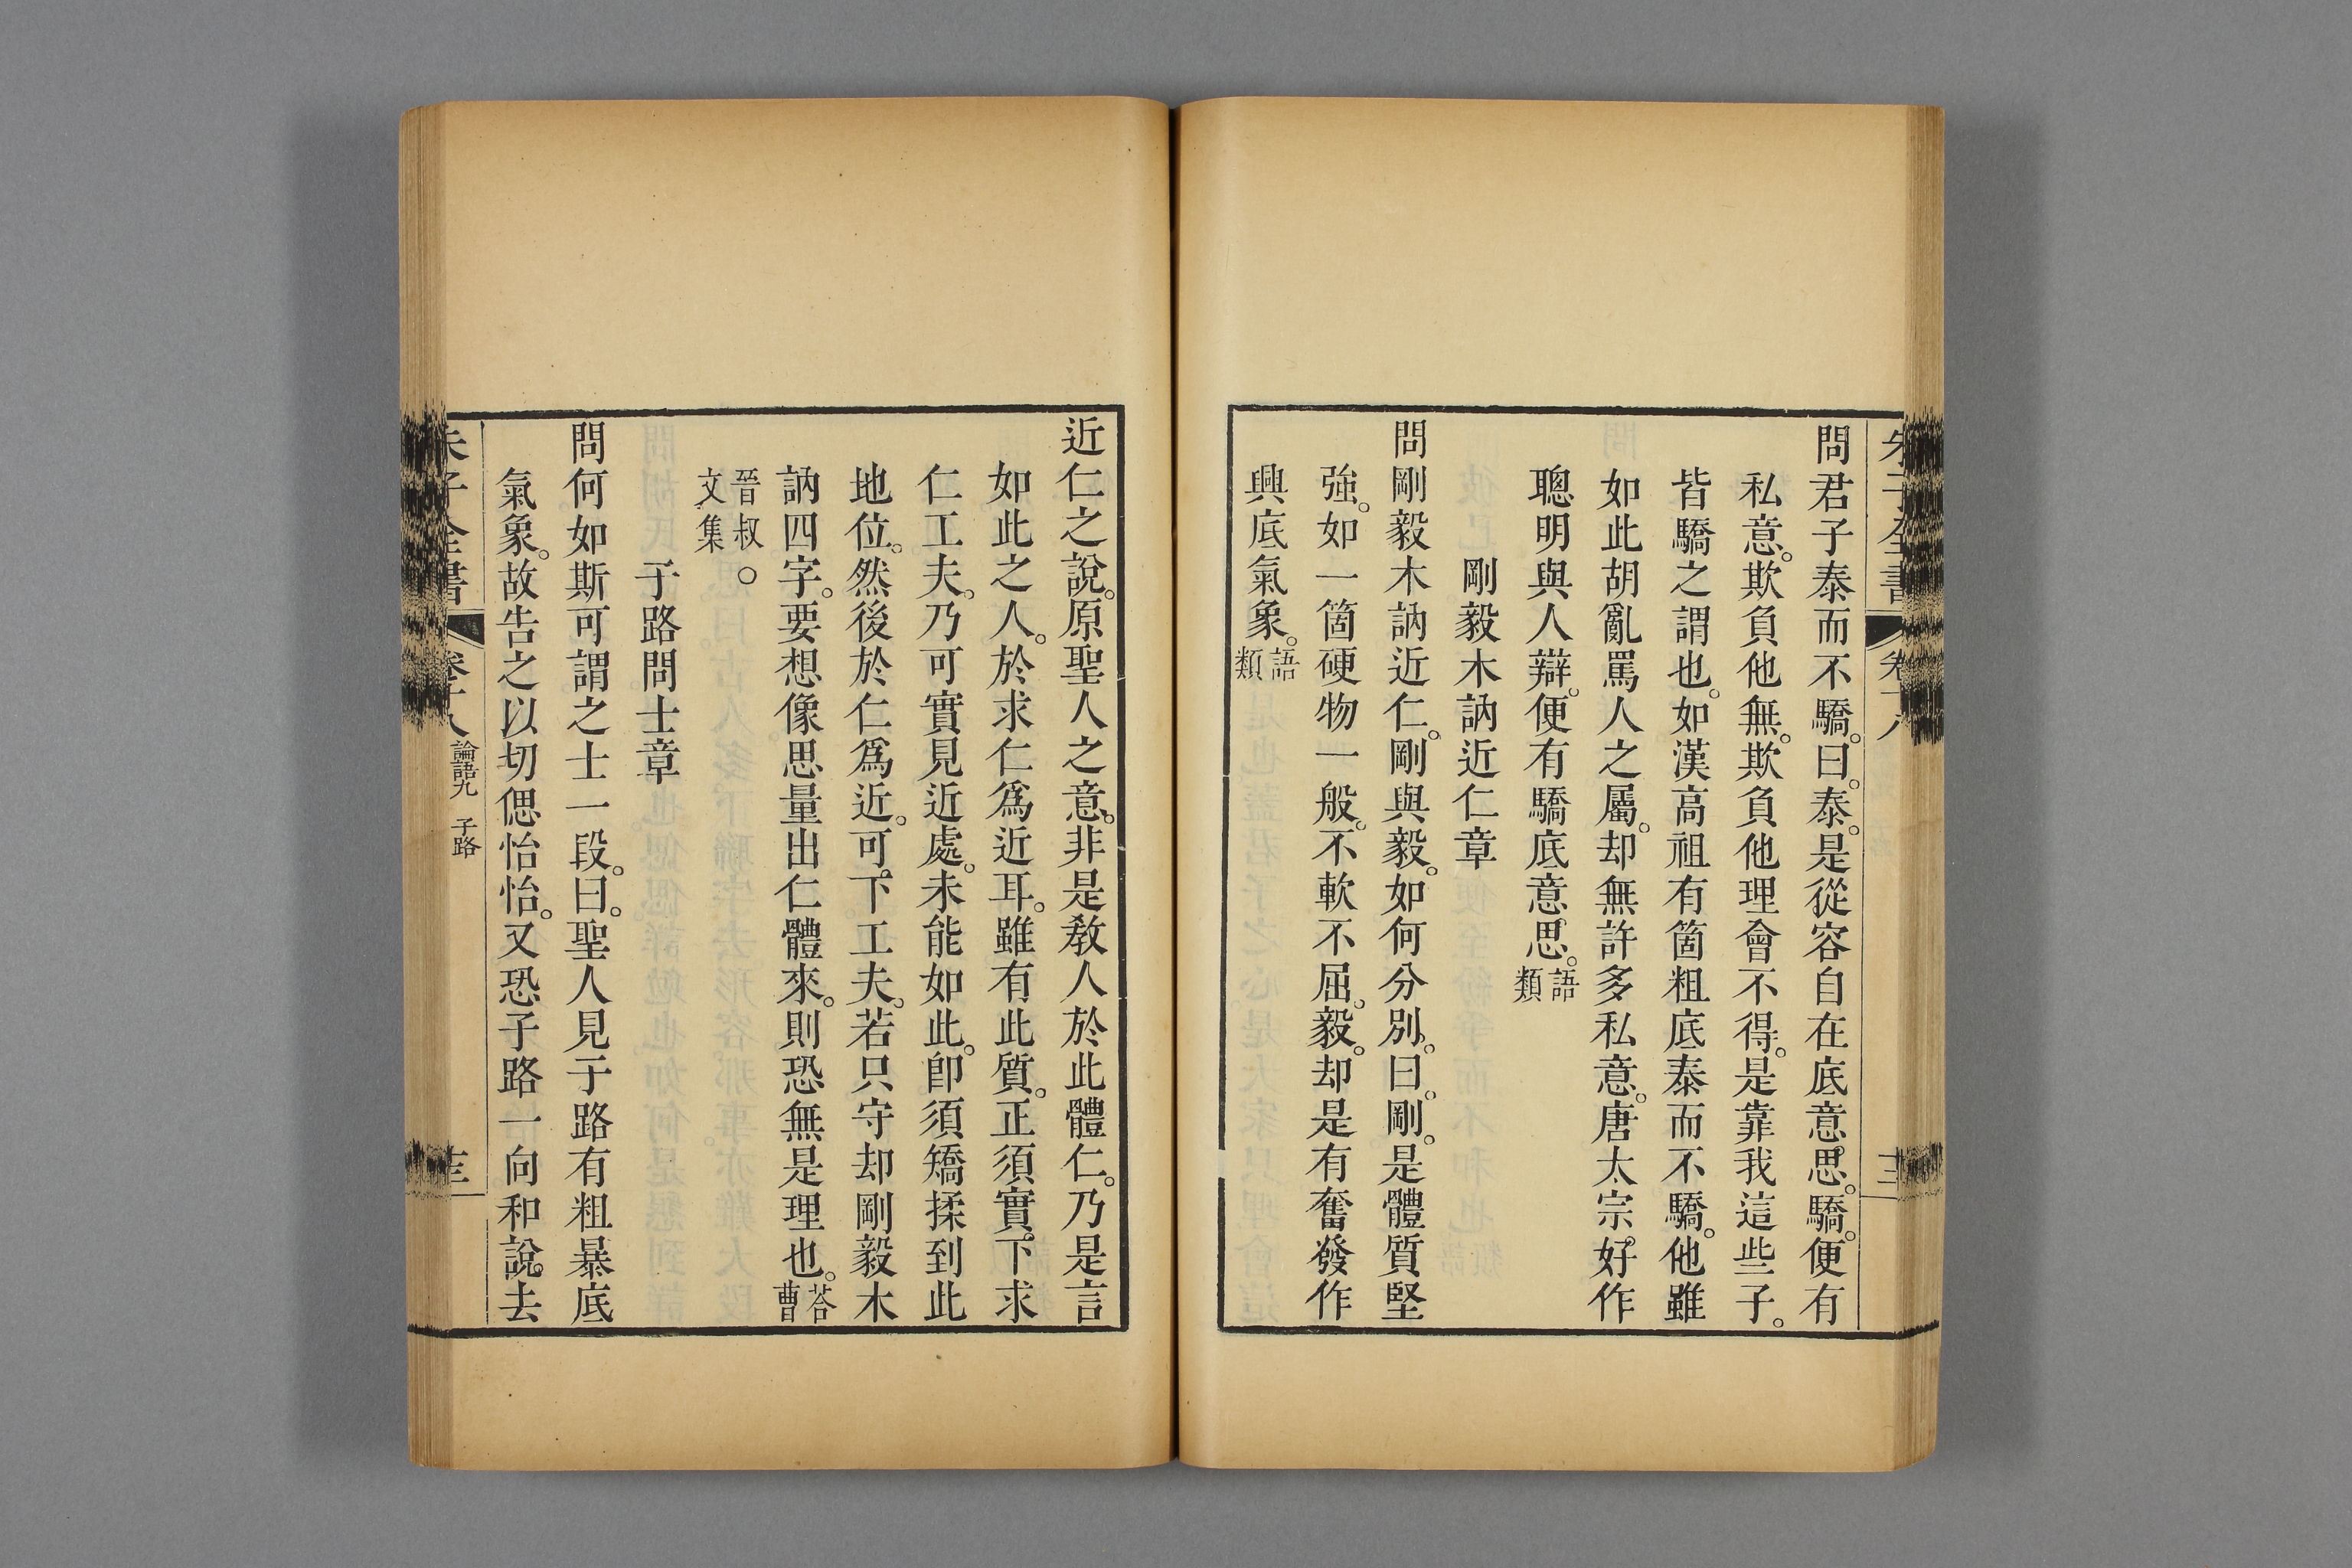 問君子泰而不驕。曰。泰。是從容自在底意思。驕。便有
私意。欺負他無。欺負他理會不得。是靠我這些子。
皆驕之謂也。如漢高祖有箇粗底泰而不驕。他雖
如此胡亂罵人之屬。却無許多私意。唐太宗。好作
聰明與人辯。便有驕底意思。語類
剛毅木訥近仁章
問剛毅木訥近仁。剛與毅。如何分別。曰。剛。是體質堅
強。如一箇硬物一般。不軟不屈。毅。却是有奮發作
興底氣象。語類
近仁之說。原聖人之意。非是敎人於此體仁。乃是言
如此之人。於求仁爲近耳。雖有此質。正須實下求
仁工夫。乃可實見近處。未能如此。卽須矯揉到此
地位。然後於仁爲近。可下工夫。若只守却剛毅木
訥四字。要想像思量出仁體來。則恐無是理也。荅曹
晉叔○文集
子路問士章
問何如斯可謂之士一段。曰。聖人見子路有粗暴底
氣象。故告之以切偲怡怡。又恐子路一向和說去
朱子全書 卷十八 論語九 子路